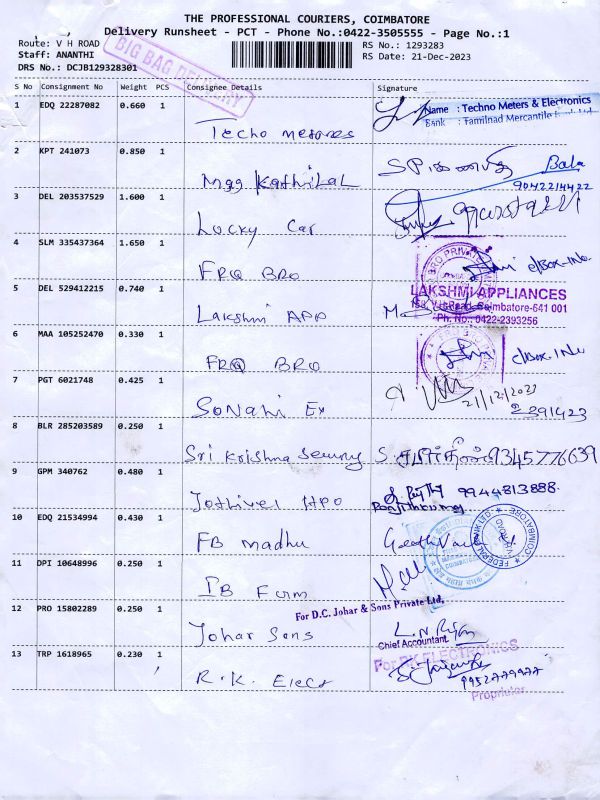 THE PROFESSIONAL COURIERS, COIMBATORE
Delivery Runsheet - PCT - Phone No.:0422-3505555 - Page No.:1
Route: V H ROAD
Staff: ANANTHI
DRS No.: DCJB129328301
BIG BAG DELIVERY
RS No.: 1293283
RS Date: 21-Dec-2023
S No Consignment No Weight PCS Consignee Details Signature
1 EDQ 22287082 0.660 1 Techo meteres
Name : Techno Meters & Electronics
Bank : Tamilnad Mercantile Bank Ltd
2 KPT 241073 0.850 1 Mgg Kathilal Bala
9042214422
3 DEL 203537529 1.600 1 Lucky Car
4 SLM 335437364 1.650 1 FRQ BRO
5 DEL 529412215 0.740 1 Lakshmi APP
LAKSHMI APPLIANCES
158, V.H.Road, Coimbatore-641 001
Ph. No.: 0422-2393256
6 MAA 105252470 0.330 1 FRQ BRO
7 PGT 6021748 0.425 1 Sonahi Ex
21/12/2023
2391423
8 BLR 285203589 0.250 1 Sri Krishna 9345776639
9 GPM 340762 0.480 1 Jothivel HPO 9944813888
10 EDQ 21534994 0.430 1 FB madhu
FEDERAL BANK LTD
COIMBATORE
11 DPI 10648996 0.250 1 IB Fum
12 PRO 15802289 0.250 1 Johar Sons
For D.C. Johar & Sons Private Ltd,
Chief Accountant
13 TRP 1618965 0.230 1 R.K. Elect
For RK ELECTRONICS
9952779977
Proprietor